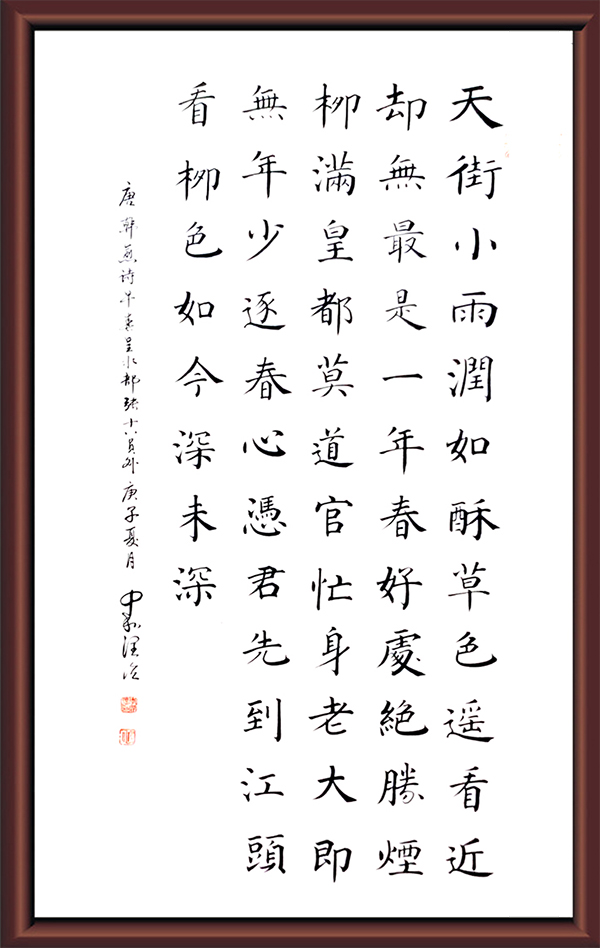 天街小雨潤如酥草色遥看近
却無最是一年春好處絶勝煙
柳滿皇都莫道官忙身老大即
無年少逐春心憑君先到江頭
看柳色如今深未深
唐韓愈诗早春呈水部張十八員外庚子夏月